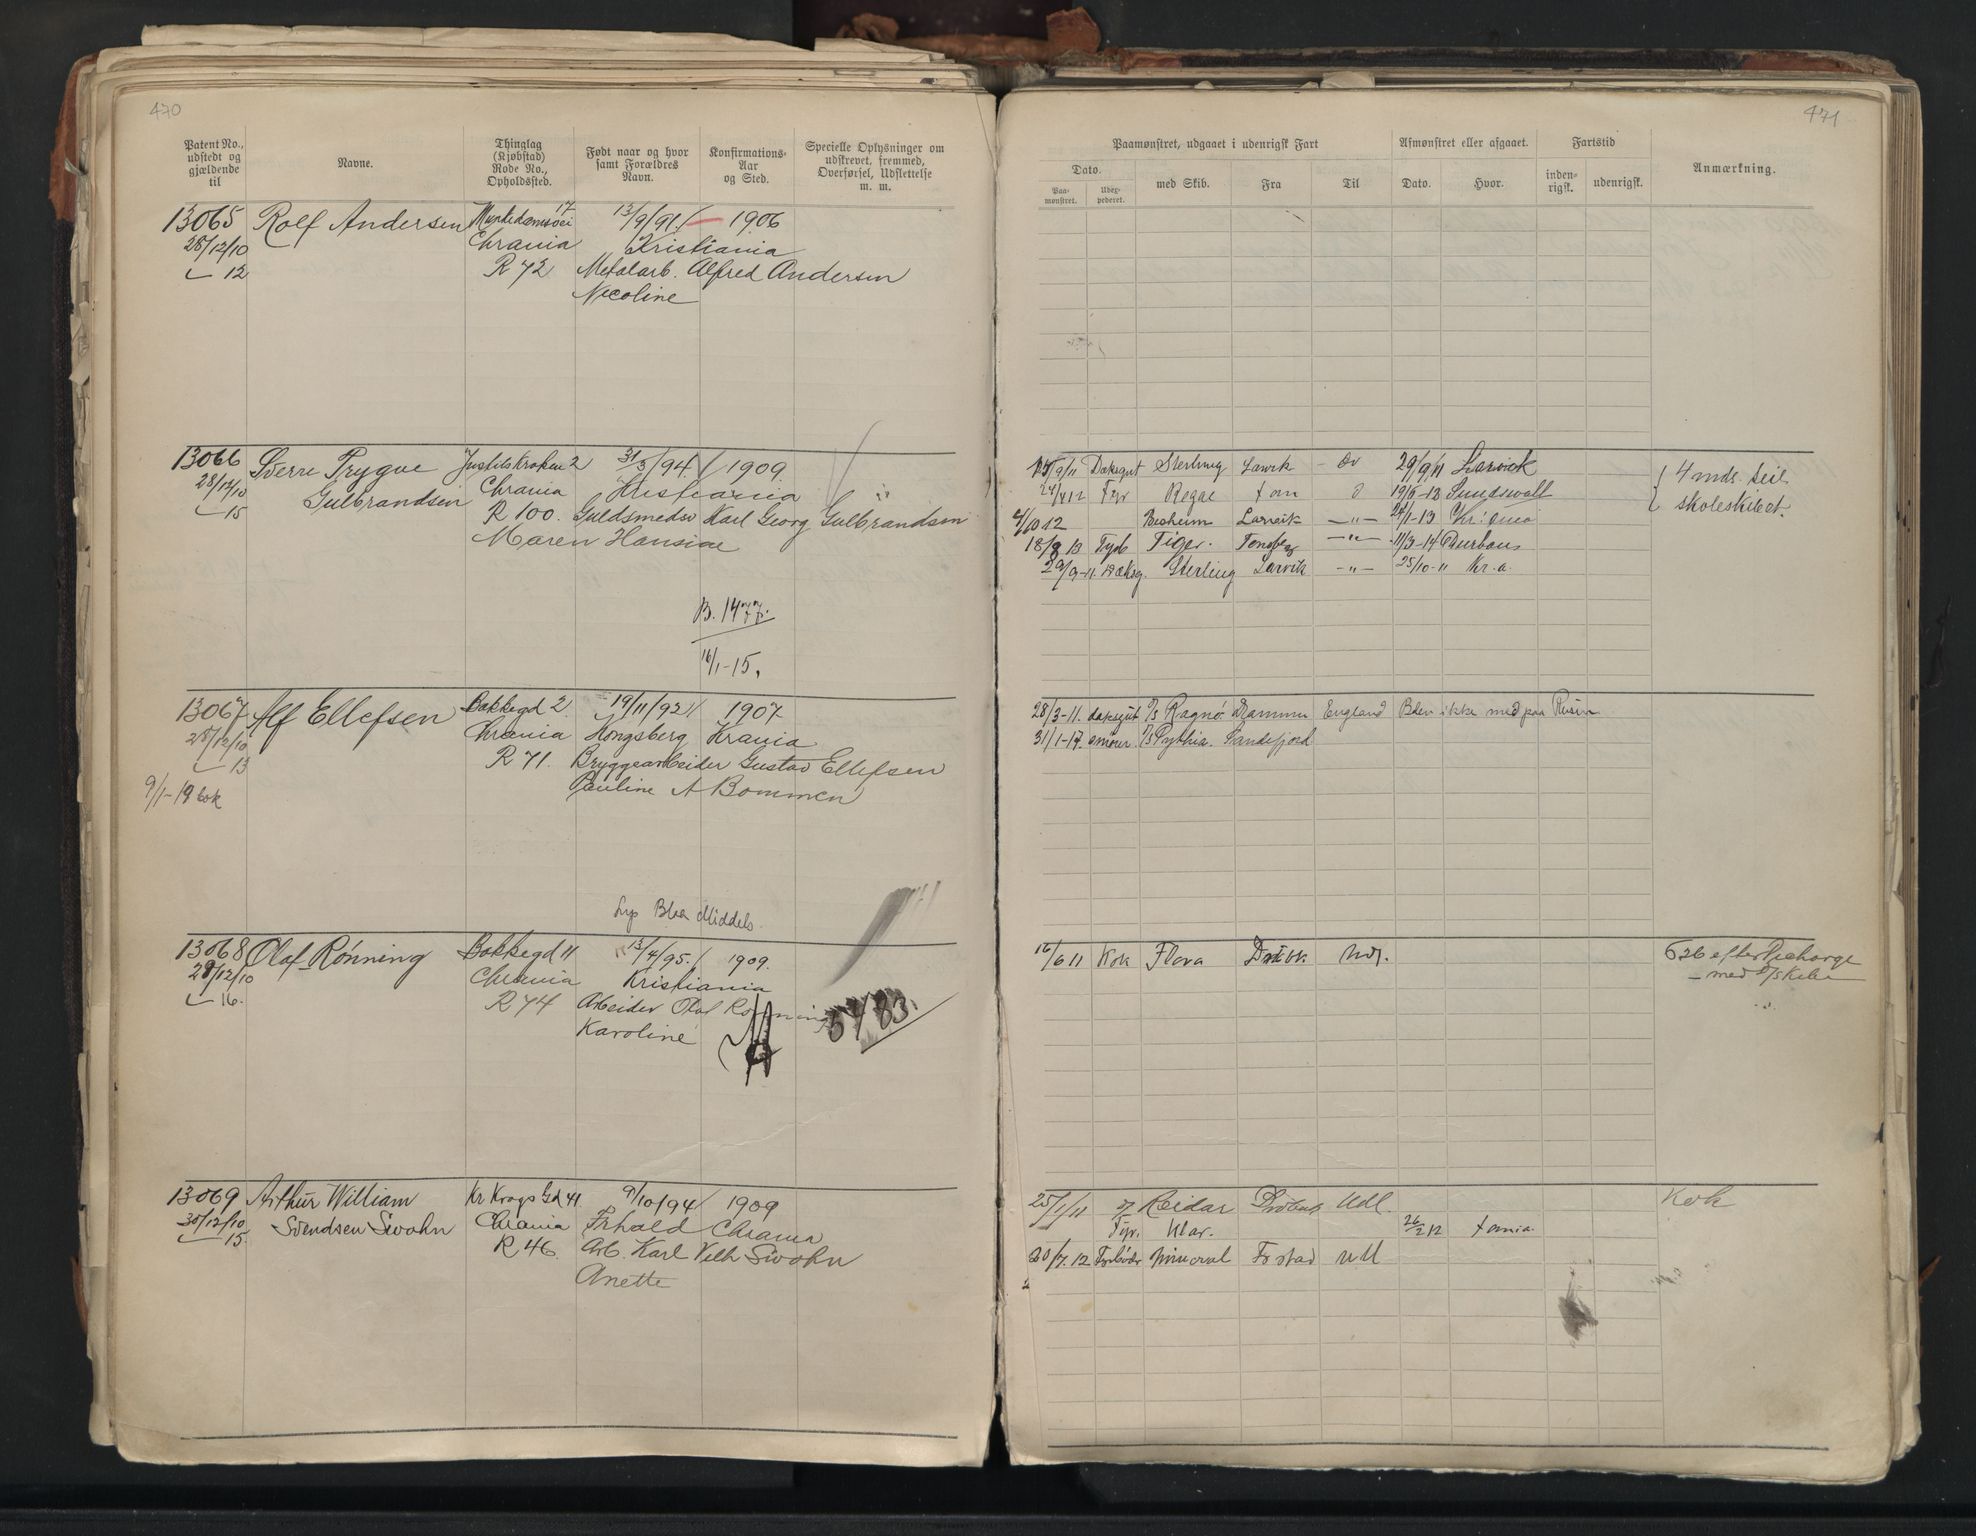 470
Patent No., udstedt og gjældende til
Navne.
Thinglag (Kjøbstad) Rode No., Opholdssted.
Født naar og hvor samt Forældres Navn.
Konfirmations-Aar og Sted.
Specielle Oplysninger om udskrevet, fremmed, Overførsel, Udslettelse m. m.
13065 Rolf Andersen 17 13/9/91 1906
28/12/10 Chrania Kristiania
12 R 72 Metalarb. Alfred Andersen
Nicoline
13066 Sverre Trygve 2 31/3/94 1909
28/12/10 Gulbrandsen Chrania Kristiania
15 R 100. Guldsmedsv Karl Georg Gulbrandsen
Maren Hansine
B. 14
16/1-15.
13067 Alf Ellefsen Bakkegd 2 19/11/92 1907
28/12/10 Chrania Kongsberg Krania
13 R 71. Bryggearbeider Gustav Ellefsen
9/1-19 bok Pauline A Bommen
Blaa Middels
13068 Olaf Rønning Bakkegd 11 13/4/95. 1909.
28/12/10 Chrania Kristiania
16. R 74 Arbeider Olaf Rønning 5783.
Karoline
13069 Arthur William Kr Krogs Gd 41 9/10/94 1909
30/12/10 Svendsen Sivohn Chrania Frhald Chrania
15. R 46 Arb. Karl Vilh Sivohn
Anette
471
Paamønstret, udgaaet i udenrigsk Fart
Afmønstret eller afgaaet.
Fartstid
Anmærkning.
Dato.
Paa-mønstret.
Uder-pederet.
med Skib.
Fra
Til
Dato.
Hvor.
inden-rigsk.
udenrigsk.
/9/11 Dæksgut Sterling Larvik 29/9/11 Larvick 4 mds. seil
Fyr 19/6-12 Sundswall skoleskibet.
4/10 12 Besheim Larvik -"- 24/1-13 Kr:ania
18/8 13 Tiger. Tønsberg -"- 11/3-14 Durban
29/9-11. Dæksg. Sterling Larvik -"- 25/10-11 Kr.a.
28/3-11. dæksgut S/S Ragnø. Drammen England Blev ikke med paa Reisen
31/1-17. S/S Pythia. Sandefjord
16/6 11 Kok Flora Udl. 626 efter
med S/S
25/1/11 Reidar Udl. Kok
Fyr. Ular. 26/2 12
20/7. 12 Fyrbøder Mineral Frstad Udl